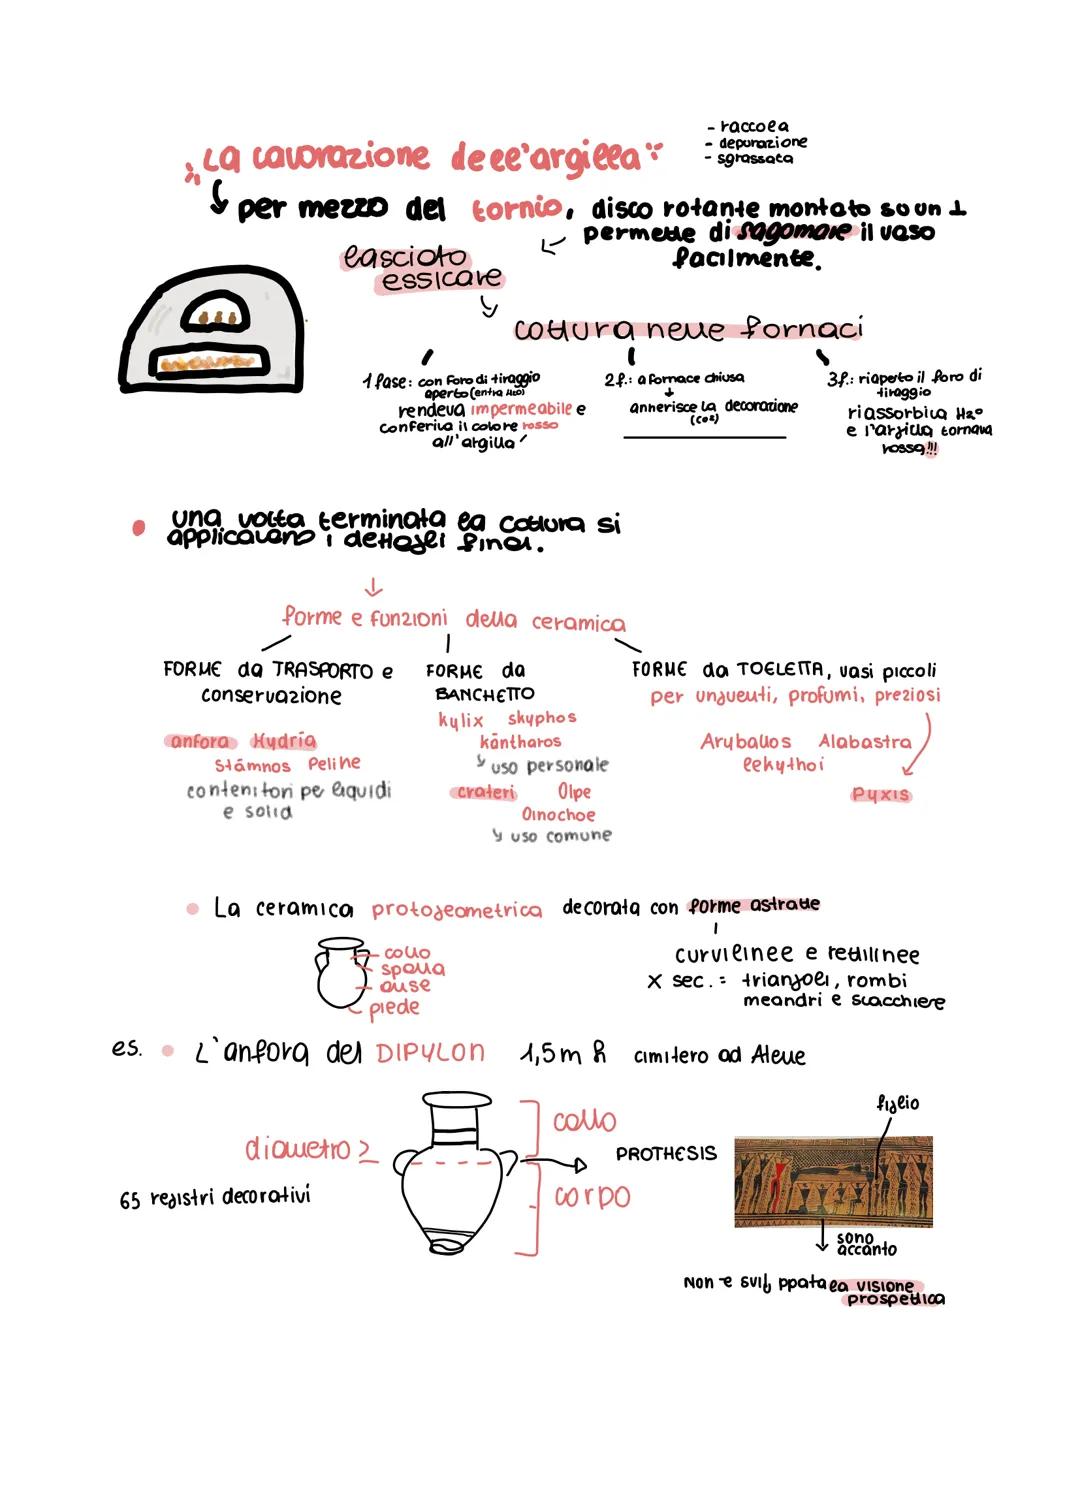 - raccolta
- depurazione
- sgrassata
La lavorazione dell'argilla
per mezzo del tornio, disco rotante montato su un ⊥
permette di sagomare il vaso
facilmente.
lasciato
essicare
cottura nelle fornaci
1 fase: con foro di tiraggio
aperto (entra H2O)
rendeva impermeabile e
conferiva il colore rosso
all'argilla
2f.: a fornace chiusa
annerisce la decorazione
(CO2)
3f.: riaperto il foro di
tiraggio
riassorbiva H2O
e l'argilla tornava
rossa!!!
una volta terminata la cottura si
applicavano i dettagli finali.
forme e funzioni della ceramica
FORME da TRASPORTO e
conservazione
anfora Hydria
Stámnos Peline
contenitori pe liquidi
e solid
FORME da
BANCHETTO
kylix skyphos
kāntharos
uso personale
crateri Olpe
Oinochoe
uso comune
FORME da TOELETTA, vasi piccoli
per unguenti, profumi, preziosi
Aryballos Alabastra
lekythoi
Pyxis
La ceramica protogeometrica decorata con forme astratte
curvilinee e rettilinee
X sec. = triangoli, rombi
meandri e scacchiere
collo
spalla
anse
piede
es. L'anfora del DIPYLON 1,5m h cimitero ad Atene
diametro ≥
65 registri decorativi
collo
corpo
PROTHESIS
figlio
sono
accanto
Non e svil ppata la visione
prospettica